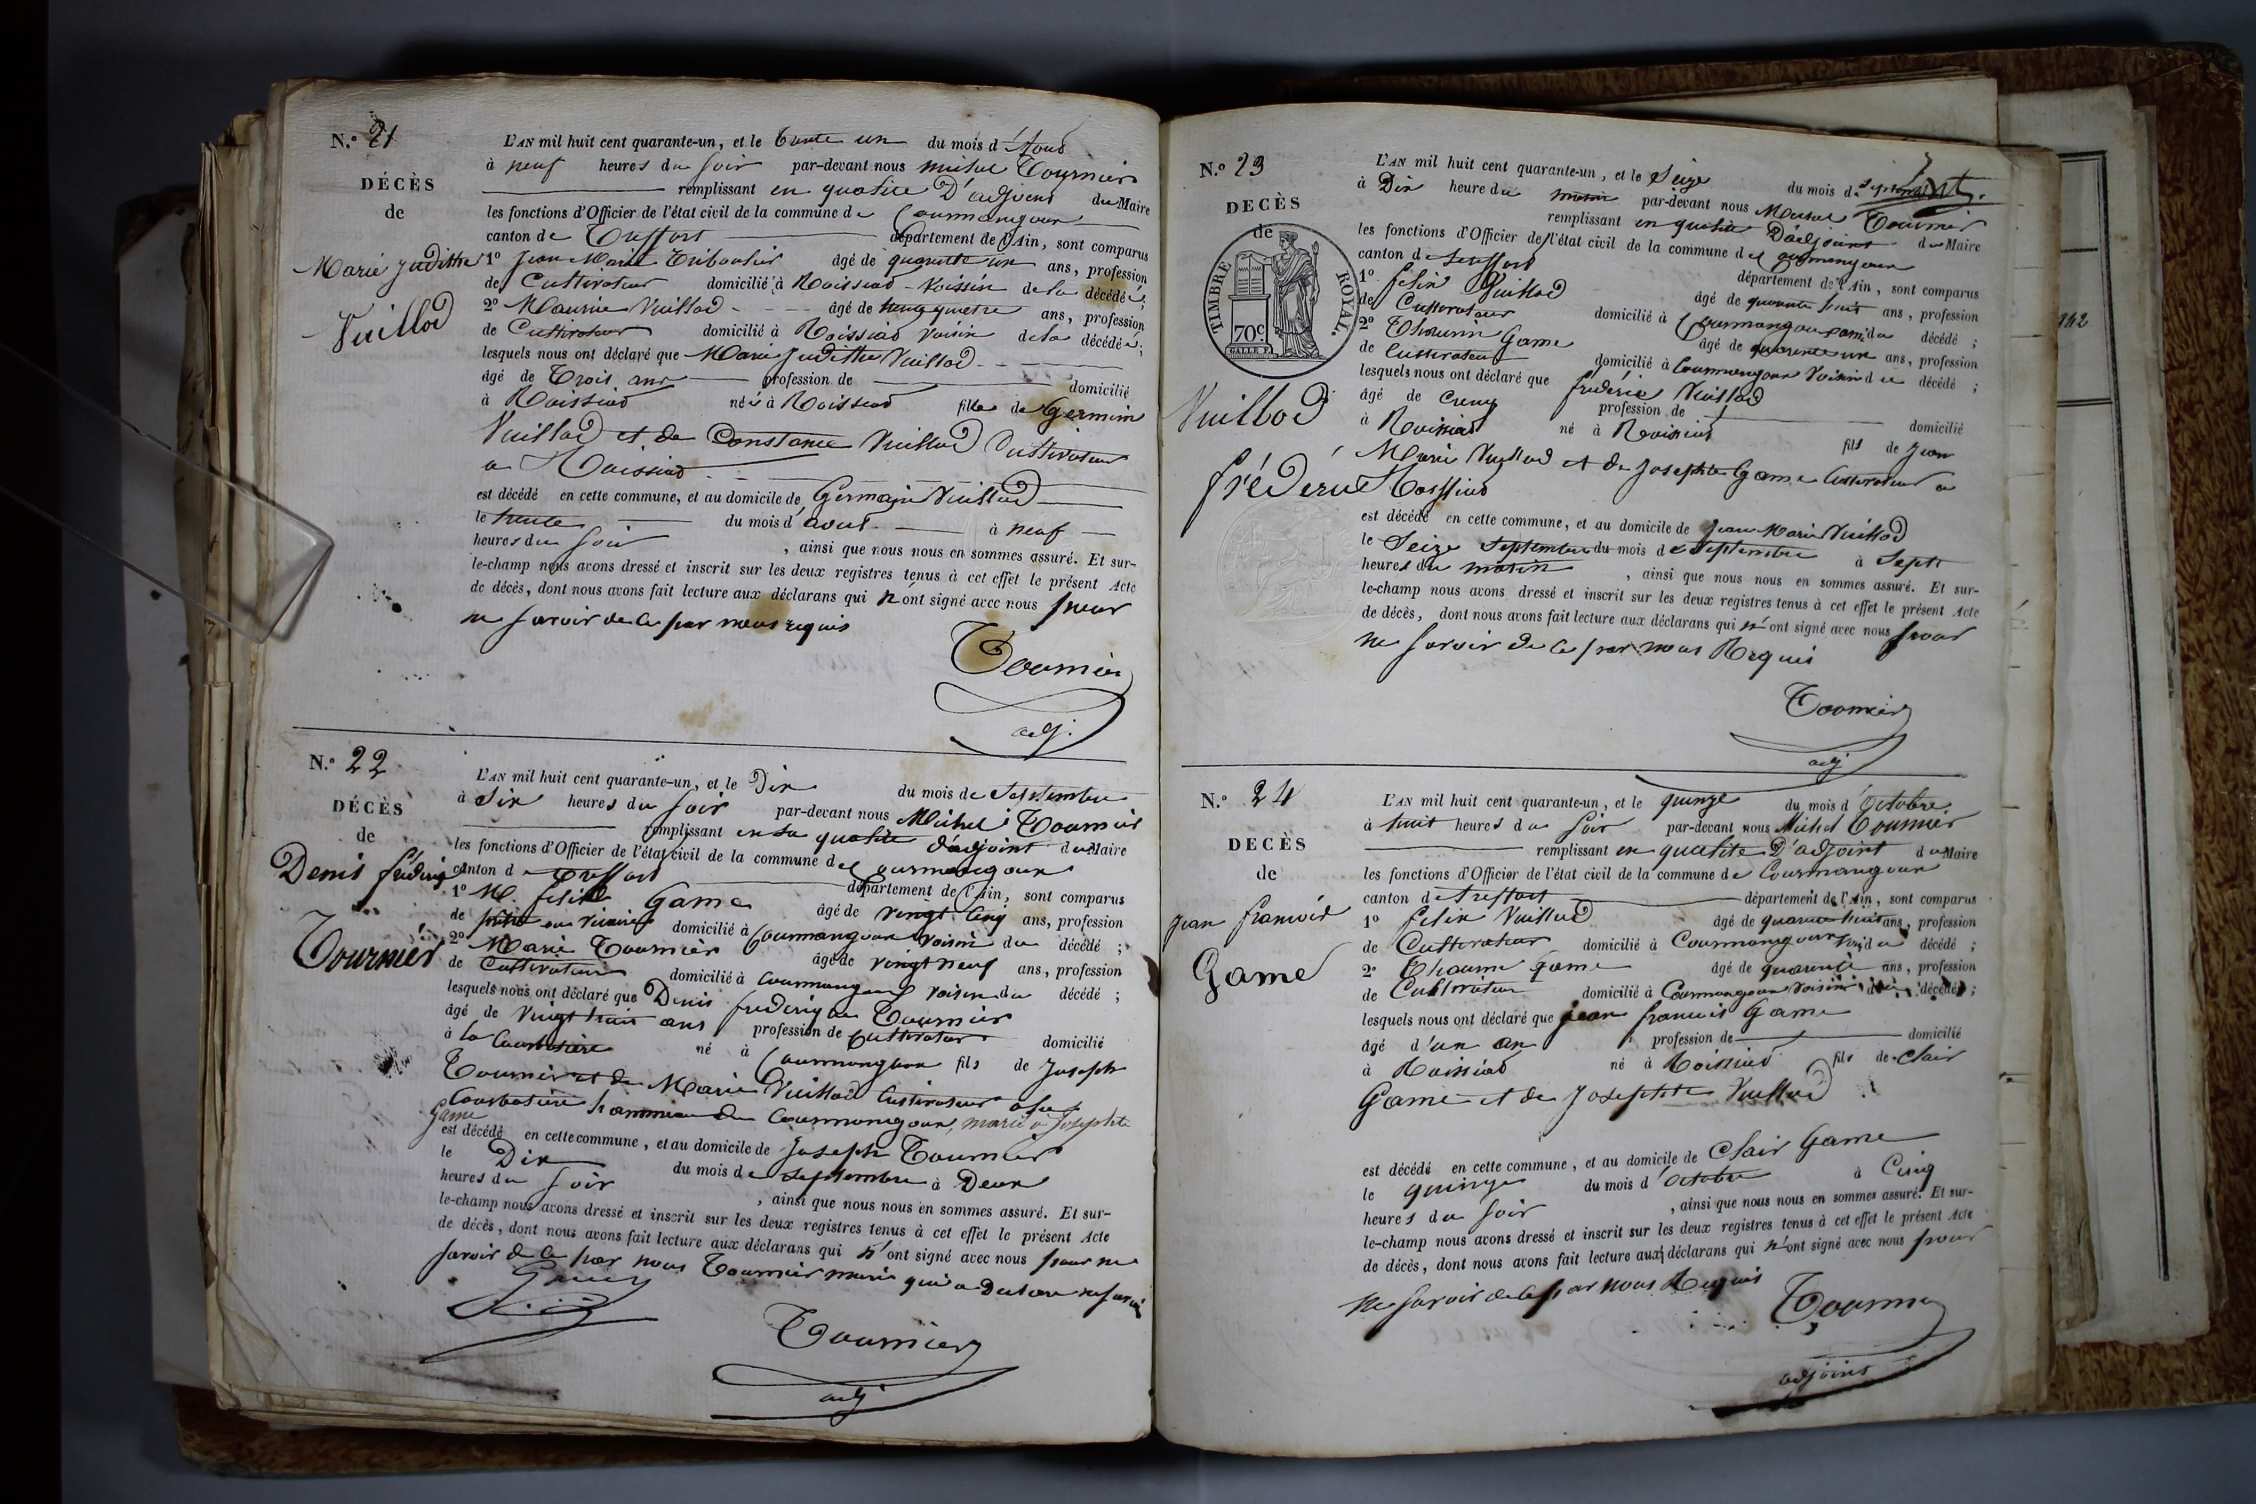 N.° 21
DÉCÈS
de
Marie Judithe
Vuillod
L'AN mil huit cent quarante-un, et le trente un du mois d'Aout
à neuf heures du soir par-devant nous michel Tournier
remplissant en qualité D'adjoint du Maire
les fonctions d'Officier de l'état civil de la commune de Courmangoux
canton de Treffort département de l'Ain, sont comparus
1° Jean Marie Triboulier âgé de quarante un ans, profession
de Cultivateur domicilié à Roissiad - Voissin de la décédée;
2° Maurice Vuillod âgé de ans, profession
de Cultivateur domicilié à Roissiad voisin de la décédée;
lesquels nous ont déclaré que Marie Judithe Vuillod
âgé de Trois ans profession de domicilié
à Roissiad née à Roissiad fille de Germain
Vuillod et de Constance Vuillod Cultivateur
a Roissiad
est décédé en cette commune, et au domicile de Germain Vuillod
le trente du mois d'aout à neuf
heures du soir, ainsi que nous nous en sommes assuré. Et sur-
le-champ nous avons dressé et inscrit sur les deux registres tenus à cet effet le présent Acte
de décès, dont nous avons fait lecture aux déclarans qui n'ont signé avec nous pour
ne savoir de ce par nous requis
Tournier
adj.
N.° 22
DÉCÈS
de
Denis fréderiq
Tournier
L'AN mil huit cent quarante-un, et le Dix du mois de Septembre
à Six heures du soir par-devant nous Michel Tournier
remplissant en sa qualité d'adjoint du Maire
les fonctions d'Officier de l'état civil de la commune de Courmangoux
canton de Treffort département de l'Ain, sont comparus
1° M. felix Game âgé de vingt cinq ans, profession
de vicaire domicilié à Courmangoux voisin du décédé;
2° Marie Tournier âgé de vingt neuf ans, profession
de Cultivateur domicilié à Courmangoux voisin du décédé;
lesquels nous ont déclaré que Denis frederique Tournier
âgé de vingt huit ans profession de Cultivateur domicilié
à la Courbatière né à Courmangoux fils de Joseph
Tournier et de Marie Vuillod Cultivateur
Courbatière hammeau de Courmangoux, marié a Josephte
Game
est décédé en cette commune, et au domicile de Joseph Tournier
le Dix du mois de Septembre à Deux
heures du soir, ainsi que nous nous en sommes assuré. Et sur-
le-champ nous avons dressé et inscrit sur les deux registres tenus à cet effet le présent Acte
de décès, dont nous avons fait lecture aux déclarans qui n'ont signé avec nous pour ne
savoir de ce par nous Tournier marie qui a
Tournier
adj
N.° 23
DÉCÈS
de
TIMBRE ROYAL.
70c.
Vuillod
fréderic
L'AN mil huit cent quarante-un, et le Seize du mois de
à Dix heure du matin par-devant nous Michel Tournier
remplissant en qualité D'adjoint du Maire
les fonctions d'Officier de l'état civil de la commune de Courmangoux
canton de Treffort département de l'Ain, sont comparus
1° felix Vuillod âgé de quarante huit ans, profession
de Cultivateur domicilié à Courmangoux ami du décédé;
2° Thaurin Game âgé de quarante un ans, profession
de Cultivateur domicilié à Courmangoux Voisin du décédé;
lesquels nous ont déclaré que frederic Vuillod
âgé de profession de domicilié
à Roissiad né à Roissiad fils de Jean
Marie Vuillod et de Josephte Game Cultivateur a
Roissiad
est décédé en cette commune, et au domicile de Jean Marie Vuillod
le Seize Septembre du mois de Septembre à Sept
heures du matin, ainsi que nous nous en sommes assuré. Et sur-
le-champ nous avons dressé et inscrit sur les deux registres tenus à cet effet le présent Acte
de décès, dont nous avons fait lecture aux déclarans qui n'ont signé avec nous pour
ne savoir de ce par nous Requis
Tournier
adj
N.° 24
DÉCÈS
de
jean francois
Game
L'AN mil huit cent quarante-un, et le quinze du mois d'Octobre
à huit heures du soir par-devant nous Michel Tournier
remplissant en qualité D'adjoint du Maire
les fonctions d'Officier de l'état civil de la commune de Courmangoux
canton de Treffort département de l'Ain, sont comparus
1° felix Vuillod âgé de quarante huit ans, profession
de Cultivateur domicilié à Courmangoux du décédé;
2° Thaurin Game âgé de quarante ans, profession
de Cultivateur domicilié à Courmangoux voisin du décédé;
lesquels nous ont déclaré que jean francois Game
âgé d'un an profession de domicilié
à Roissiad né à Roissiad fils de Clair
Game et de Josephte Vuillod
est décédé en cette commune, et au domicile de Clair Game
le quinze du mois d'octobre à Cinq
heures du soir, ainsi que nous nous en sommes assuré. Et sur-
le-champ nous avons dressé et inscrit sur les deux registres tenus à cet effet le présent Acte
de décès, dont nous avons fait lecture aux déclarans qui n'ont signé avec nous pour
ne savoir de ce par nous Requis
Tournier
adjoint